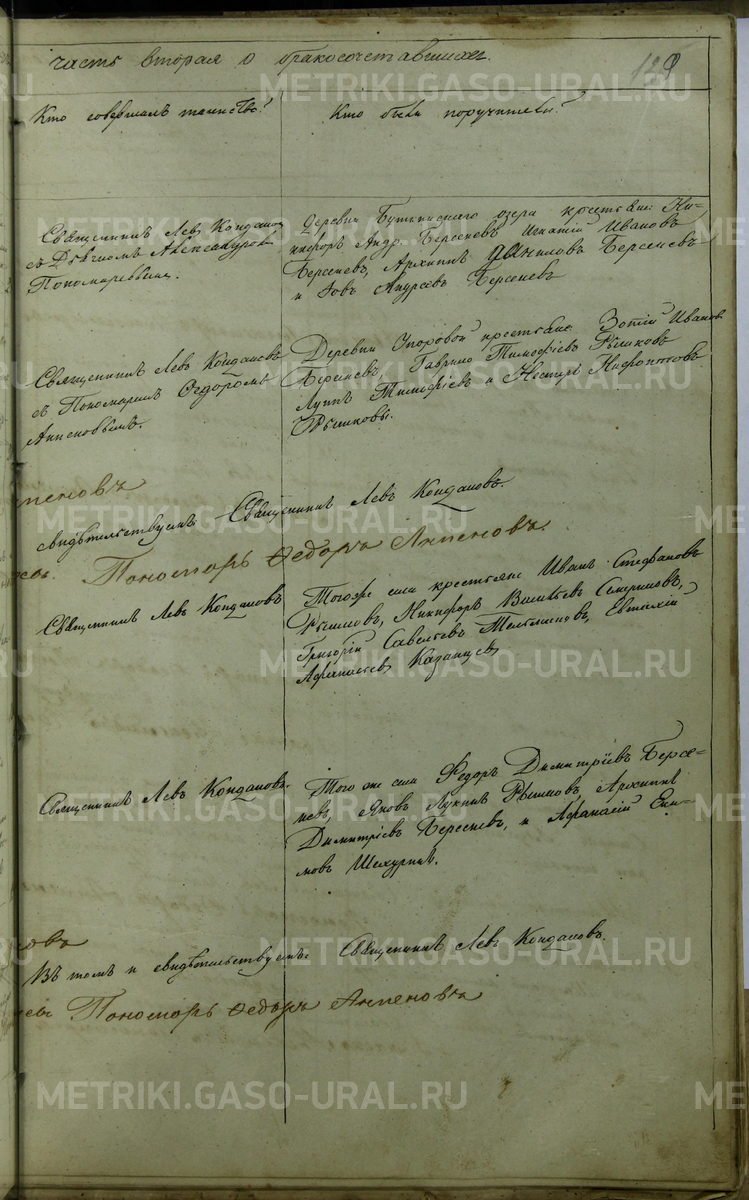 часть вторая о бракосочетавшихся.
Кто совершалъ таинство? Кто были поручители?
Священникъ Левъ Кондаковъ
съ Дьячкомъ Александромъ
Пономаревымъ.
Деревни Буткинскаго озера крестьяне: Ни-
кифоръ Андр. Берсеневъ Игнатій Ивановъ
Берсеневъ, Архипъ Даниловъ Берсеневъ
и Іовъ Андреевъ Берсеневъ
Священникъ Левъ Кондаковъ
съ Пономаремъ Ѳедоромъ
Анпеновымъ.
Деревни Упоровой крестьяне: Зотій Иванов
Берсеневъ, Гаврило Тимофѣевъ Рѣшиковъ
Лупъ Тимофѣевъ и Несторъ Нифонтовъ
пеновъ
свидѣтельствуемъ Священникъ Левъ Кондаковъ.
Пономарь Ѳедоръ Анпеновъ.
Священникъ Левъ Кондаковъ
Тогоже села крестьяне Иванъ Стефановъ
Никифоръ Васильевъ Смирновъ,
Григорій Савельевъ Евтихій
Афанасьевъ Казанцевъ
Священникъ Левъ Кондаковъ.
Того же села Ѳедоръ Димитріевъ Берсе-
невъ, Яковъ Лукинъ Архипъ
Димитріевъ Берсеневъ, и Афанасій Еки-
мовъ Шахуринъ.
ковъ
Въ томъ и свидѣтельствуемъ: Священникъ Левъ Кондаковъ.
Пономарь Ѳедоръ Анпеновъ
METRIKI.GASO-URAL.RU